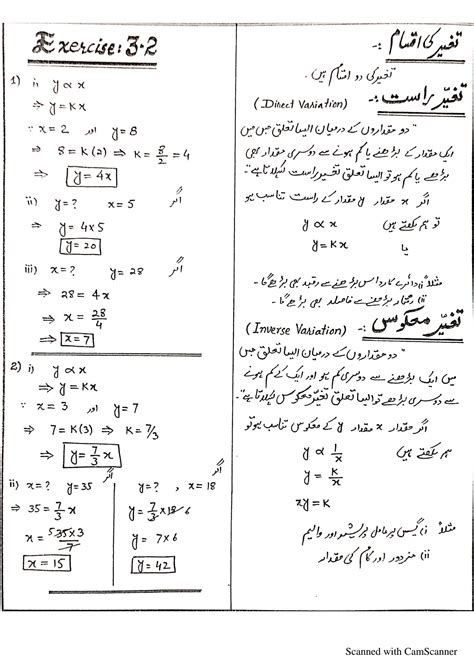 Exercise: 3.2
1) i) y ∝ x
⇒ y = Kx
∵ x = 2 اور y = 8
⇒ 8 = K(2) ⇒ K = 8/2 = 4
⇒ y = 4x
ii) y = ? x = 5 اگر
⇒ y = 4x5
y = 20
iii) x = ? y = 28 اگر
⇒ 28 = 4x
⇒ x = 28/4
⇒ x = 7
2) i) y ∝ x
⇒ y = Kx
∵ x = 3 اور y = 7
⇒ 7 = K(3) ⇒ K = 7/3
⇒ y = 7/3 x
ii) x = ? y = 35 اگر
⇒ 35 = 7/3 x
x = 5 35x3/7
x = 15
y = ? , x = 18 اگر
y = 7/3 x 18 6
y = 7x6
y = 42
تغیر کی اقسام :-
تغیر کی دو اقسام ہیں۔
تغیّر راست :-
(Direct Variation)
"دو مقداروں کے درمیان ایسا تعلق جس میں
ایک مقدار کے بڑھنے یا کم ہونے سے دوسری مقدار بھی
بڑھے یا کم ہو تو ایسا تعلق تغیر راست کہلاتا ہے"۔
اگر x مقدار y مقدار کے راست تناسب ہو
تو ہم لکھتے ہیں y ∝ x
یا y = Kx
مثلاً i) دائرے کا رداس بڑھنے سے رقبہ بھی بڑھے گا۔
ii) رفتار بڑھنے سے فاصلہ بھی بڑھے گا۔
تغیّر معکوس :-
(Inverse Variation)
"دو مقداروں کے درمیان ایسا تعلق جس
میں ایک بڑھنے سے دوسری کم ہو اور ایک کے کم ہونے
سے دوسری بڑھے تو ایسا تعلق تغیر معکوس کہلاتا ہے"۔
اگر مقدار x مقدار y کے معکوس تناسب ہو تو
ہم لکھتے ہیں y ∝ 1/x
y = K/x
xy = K
مثلاً i) گیس پر عامل پریشر اور والیم
ii) مزدور اور کام کی مقدار
Scanned with CamScanner